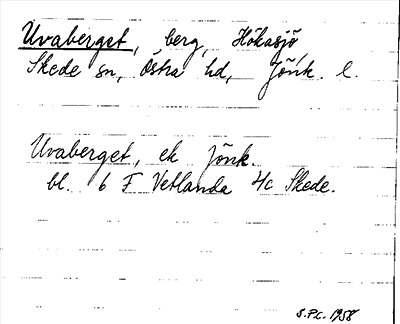 Uvaberget, berg, Hökasjö,
Skede sn, Östra hd, Jönk. l.
Uvaberget, ek Jönk.
bl. 6 F Vetlanda 4c Skede.
S.P.C. 1958